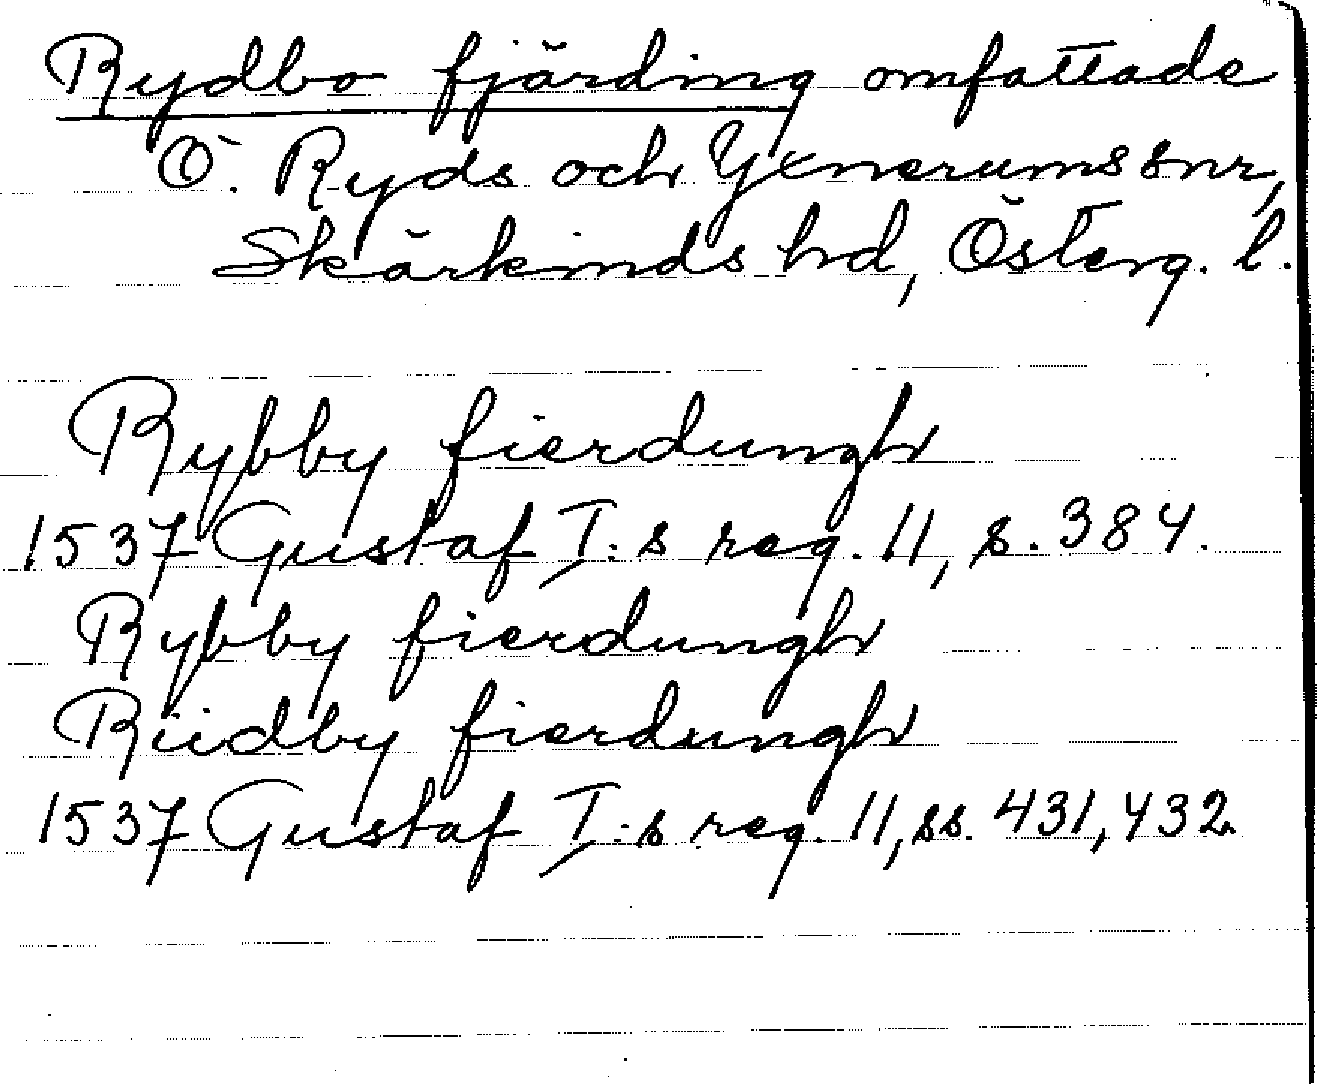 Rydbo fjärding omfattade
Ö. Ryds och Yxnerums snr,
Skärkinds hd, Österg. l.
Rybby fierdungh
1537 Gustaf I:s reg. 11, s. 384.
Rybby fierdungh
Riidby fierdungh
1537 Gustaf I:s reg. 11, ss. 431, 432.